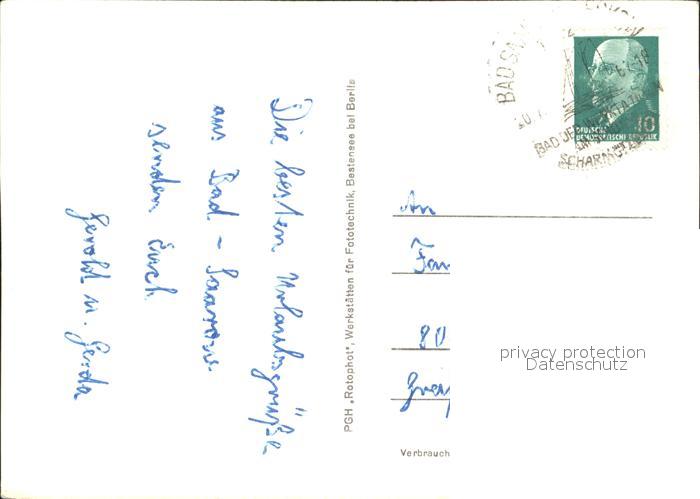 Die besten Urlaubsgrüße
aus Bad - Saarow
senden Euch
Gerold u. Gerda
PGH „Rotophot", Werkstätten für Fototechnik, Bestensee bei Berlin
BAD SAAROW
BAD DER WERKTÄTIGEN
AM
SCHARMÜTZELSEE
DEUTSCHE
DEMOKRATISCHE REPUBLIK
10
An
Fam
80
privacy protection
Datenschutz
Verbrauch